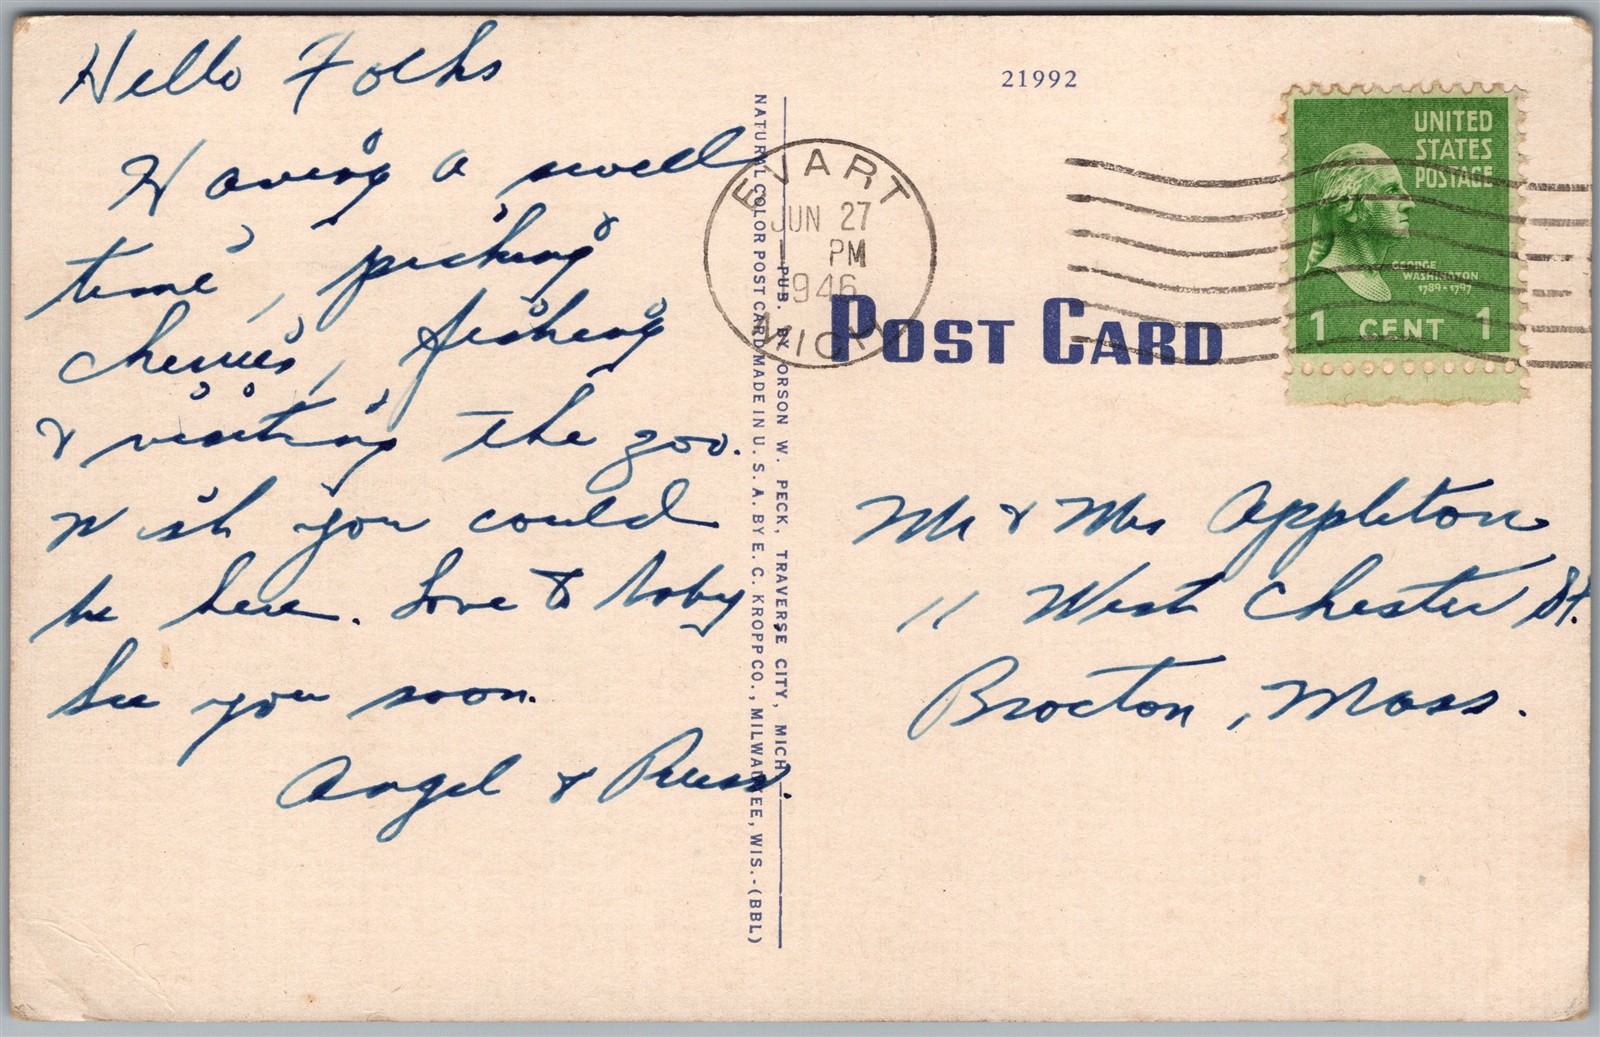 Hello Folks
Having a swell
time, picking
cherries, fishing
& visiting the zoo.
Wish you could
be here. Love to Toby
See you soon.
Angel & Russ.
NATURAL COLOR POST CARD MADE IN U. S. A. BY E. C. KROPP CO., MILWAUKEE, WIS.-(BBL)
PUB. BY ORSON W. PECK, TRAVERSE CITY, MICH.
21992
EVART
JUN 27
PM
1946
MICH
POST CARD
UNITED
STATES
POSTAGE
GEORGE
WASHINGTON
1789-1797
1 CENT 1
Mr & Mrs Appleton
11 West Chester St.
Brocton, Mass.